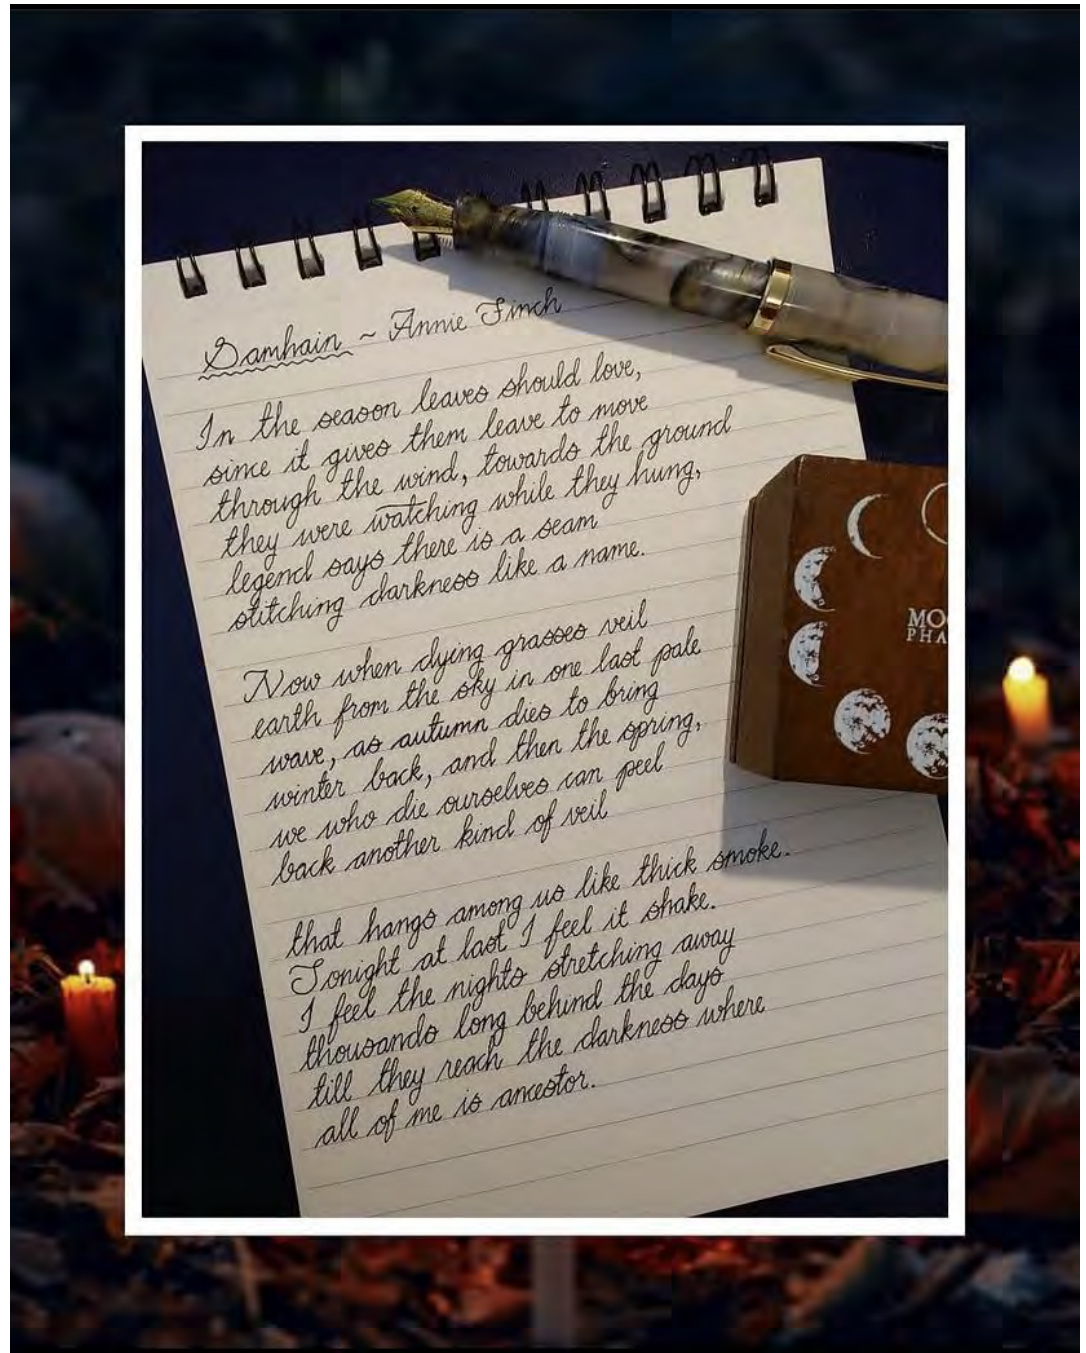 Samhain ~ Annie Finch
In the season leaves should love,
since it gives them leave to move
through the wind, towards the ground
they were watching while they hung,
legend says there is a seam
stitching darkness like a name.
Now when dying grasses veil
earth from the sky in one last pale
wave, as autumn dies to bring
winter back, and then the spring,
we who die ourselves can peel
back another kind of veil
that hangs among us like thick smoke.
Tonight at last I feel it shake.
I feel the nights stretching away
thousands long behind the days
till they reach the darkness where
all of me is ancestor.
MOO
PHA